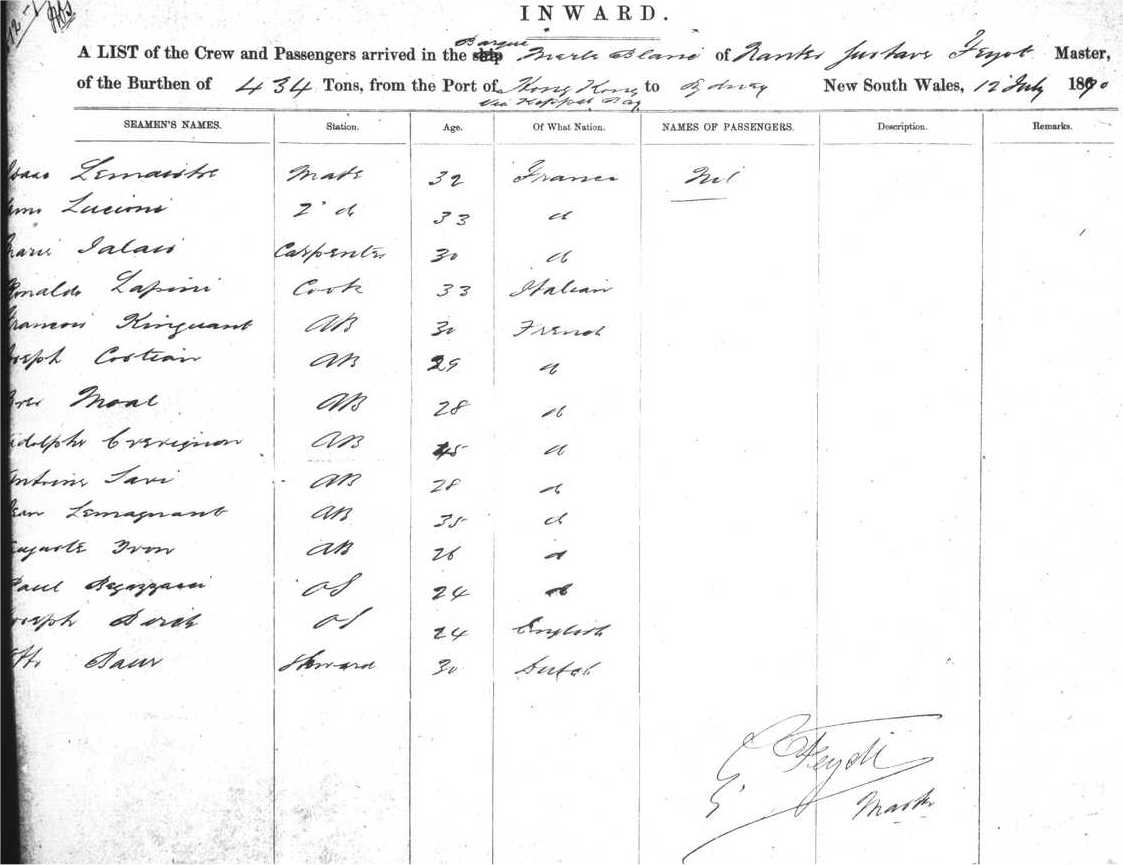 INWARD.
A LIST of the Crew and Passengers arrived in the ship Barque Merle Blanc of Nantes Gustave Feydt Master,
of the Burthen of 434 Tons, from the Port of Hong Kong to Sydney New South Wales, 12 July 1870
via Keppel Bay
SEAMEN'S NAMES. Station. Age. Of What Nation. NAMES OF PASSENGERS. Description. Remarks.
Lemaistre Mate 32 France Nil
Lucioni 2d 33 d
Jalais Carpenter 30 d
Lapini Cook 33 Italian
Francois Kinguant AB 30 French
Joseph Costian AB 29 d
Moal AB 28 d
Adolphe Crevignon AB 45 d
Antoine Savi AB 28 d
Jean Lemagnant AB 35 d
Auguste Yvon AB 26 d
Paul OS 24 d
Joseph Birch OS 24 English
Baur Steward 30 Dutch
G. Feydt
Master